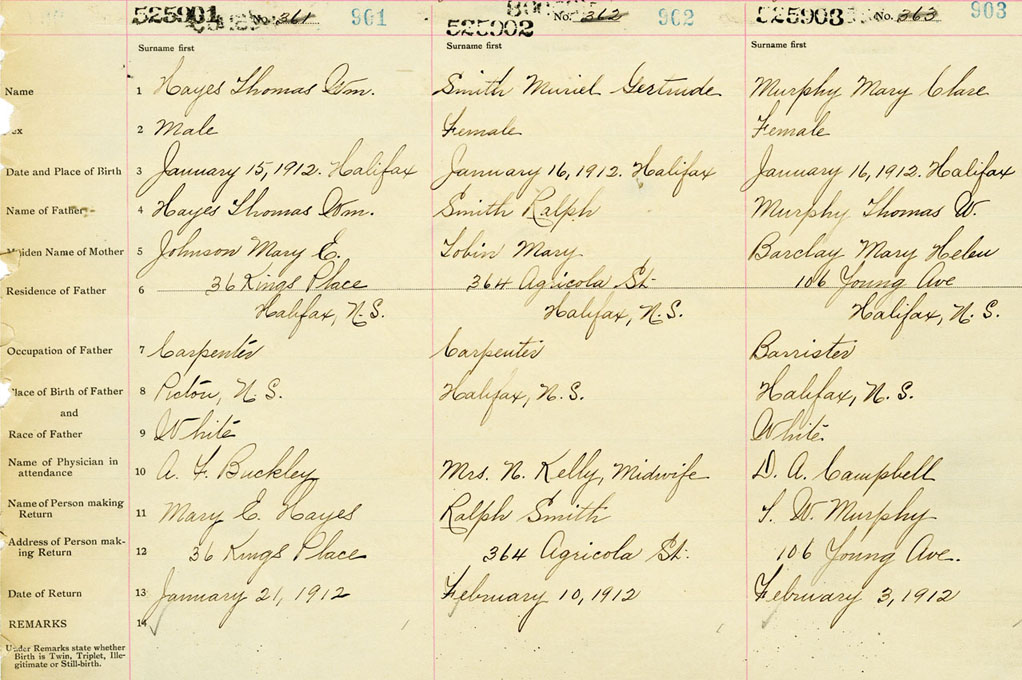 525901 No. 361 901
525902 No. 362 902
525903 No. 363 903
Surname first
Surname first
Surname first
Name 1 Hayes Thomas Wm. Smith Muriel Gertrude Murphy Mary Clare
ex 2 Male Female Female
Date and Place of Birth 3 January 15, 1912. Halifax January 16, 1912. Halifax January 16, 1912. Halifax
Name of Father 4 Hayes Thomas Wm. Smith Ralph Murphy Thomas W.
Maiden Name of Mother 5 Johnson Mary E. Tobin Mary Barclay Mary Helen
Residence of Father 6 36 Kings Place 364 Agricola St. 106 Young Ave
Halifax, N.S. Halifax, N.S. Halifax, N.S.
Occupation of Father 7 Carpenter Carpenter Barrister
Place of Birth of Father 8 Pictou, N.S. Halifax, N.S. Halifax, N.S.
and
Race of Father 9 White White
Name of Physician in
attendance 10 A. F. Buckley Mrs. N. Kelly, Midwife D. A. Campbell
Name of Person making
Return 11 Mary E. Hayes Ralph Smith T. W. Murphy
Address of Person mak-
ing Return 12 36 Kings Place 364 Agricola St. 106 Young Ave.
Date of Return 13 January 21, 1912 February 10, 1912 February 3, 1912
REMARKS 14
Under Remarks state whether
Birth is Twin, Triplet, Ille-
gitimate or Still-birth.